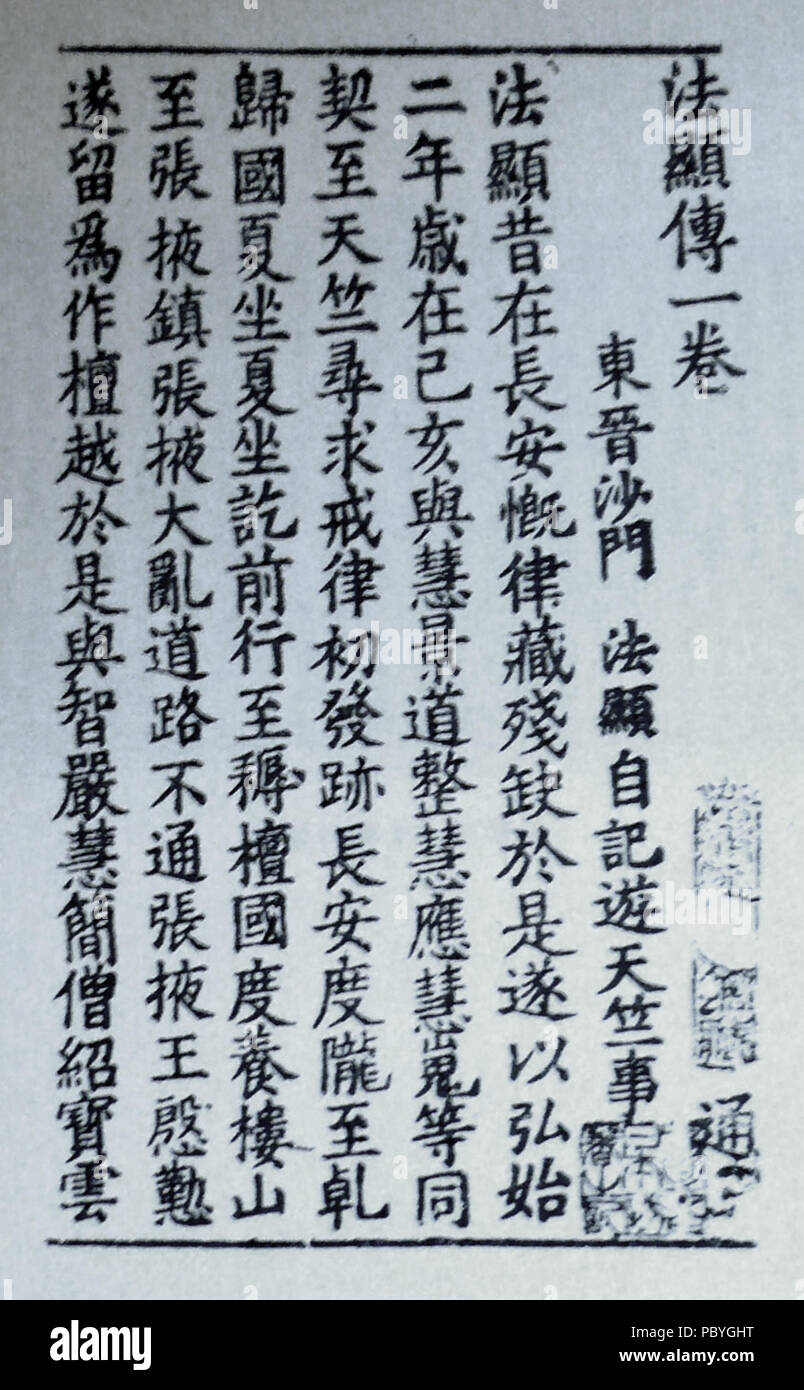 法顯傳一卷
通
東晉沙門 法顯自記遊天竺事
法顯昔在長安慨律藏殘缺於是遂以弘始
二年歲在己亥與慧景道整慧應慧嵬等同
契至天竺尋求戒律初發跡長安度隴至乹
歸國夏坐夏坐訖前行至耨檀國度養樓山
至張掖鎮張掖大亂道路不通張掖王慇懃
遂留爲作檀越於是與智嚴慧簡僧紹寶雲
alamy
Image ID: PBYGHT
www.alamy.com